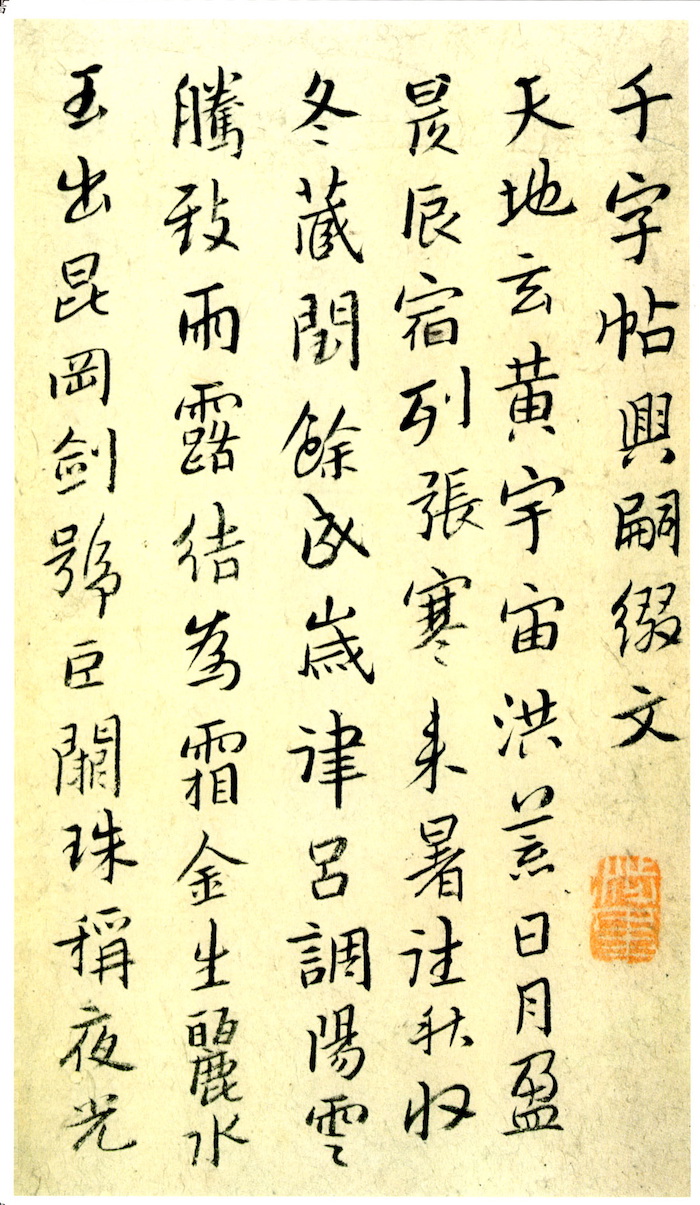 千字帖興嗣綴文
天地玄黃宇宙洪荒日月盈
昃辰宿列張寒来暑往秋收
冬藏閏餘成歲律呂調陽雲
騰致雨露結為霜金生麗水
玉出昆岡劍號巨闕珠稱夜光